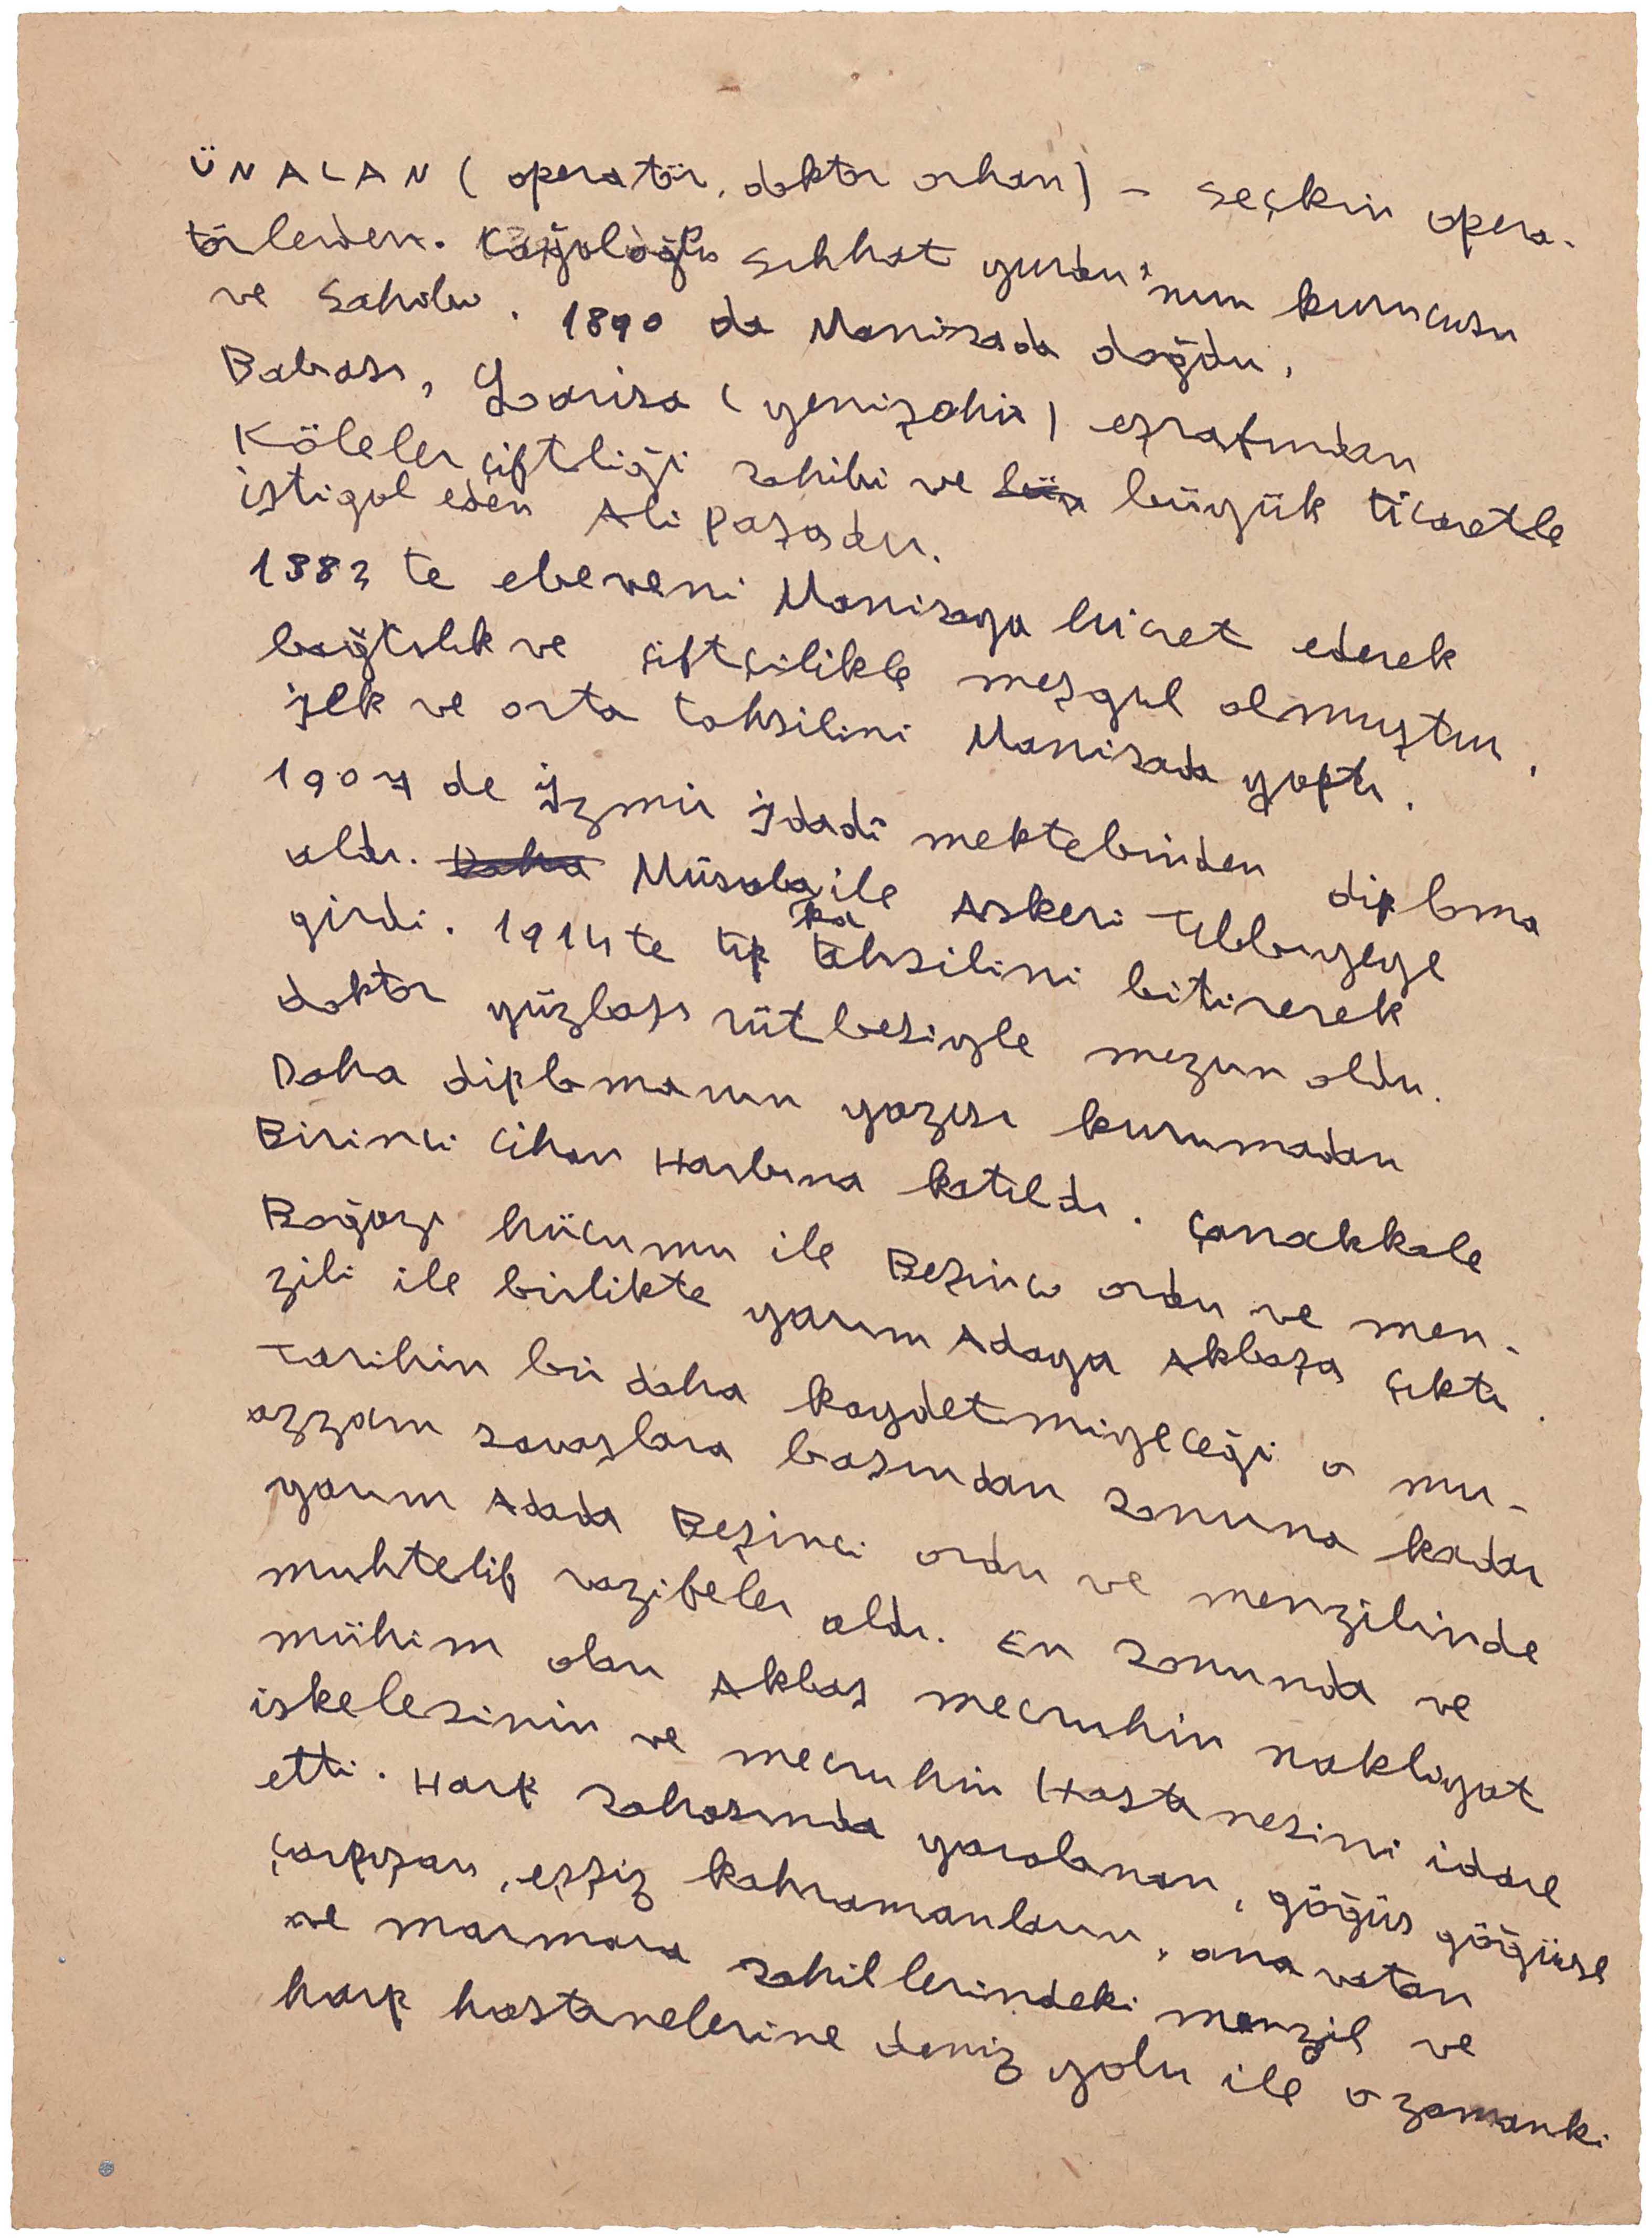 ÜNALAN (operatör, doktor orhan) - seçkin opera-
törlerden. Cağaloğlu Sıhhat yurdu'nun kurucusu
ve sahibi. 1890 da Manisada doğdu.
Babası, Larisa (yenişehir) eşrafından
Köleler çiftliği sahibi ve büyük ticaretle
iştigal eden Ali paşadır.
1883 te ebeveni Manisaya hicret ederek
bağcılık ve çiftçilikle meşgul olmuştur.
İlk ve orta tahsilini Manisada yaptı.
1907 de İzmir İdadî mektebinden diploma
aldı. Daha Müsabaka ile Askeri Tıbbiyeye
girdi. 1914 te tıp tahsilini bitirerek
doktor yüzbaşı rütbesiyle mezun oldu.
Daha diplomanın yazısı kurumadan
Birinci Cihan Harbına katıldı. Çanakkale
Boğazı hücumu ile Beşinci ordu ve men-
zili ile birlikte yarım Adaya Akbaşa çıktı.
Tarihin bir daha kaydetmiyeceği o mu-
azzam savaşlara başından sonuna kadar
yarım Adada Beşinci ordu ve menzilinde
muhtelif vazifeler aldı. En sonunda ve
mühim olan Akbaş mecruhin nakliyat
iskelesinin ve mecruhin Hastanesini idare
etti. Harp sahasında yaralanan, göğüs göğüse
çarpışan, eşsiz kahramanların, ana vatan
ve marmara sahillerindeki menzil ve
harp hastanelerine deniz yolu ile o zamanki